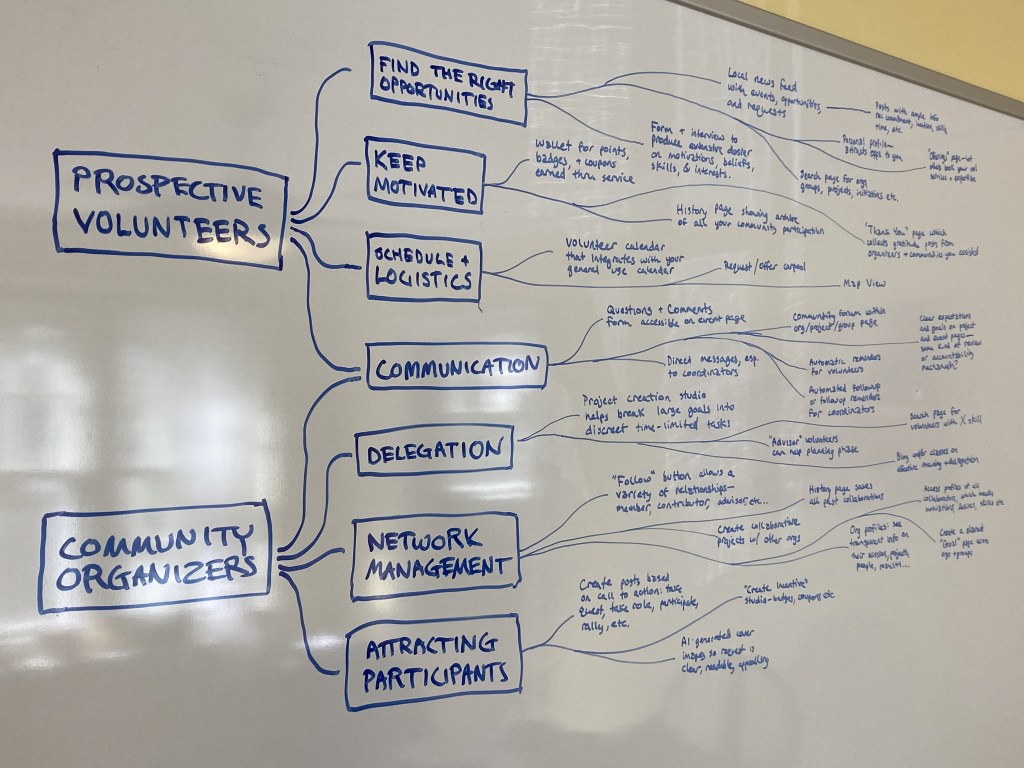 PROSPECTIVE
VOLUNTEERS
FIND THE RIGHT
OPPORTUNITIES
Local news feed
with events, opportunities,
and requests
Posts with
time, etc.
Personal profile—
attracts opps to you
"Offerings" page—let
others book your vol
services + expertise
Form + interview to
produce extensive dossier
on motivations, beliefs,
skills, & interests.
Search page for orgs
groups, projects, initiatives etc.
KEEP
MOTIVATED
Wallet for points,
badges, + coupons
earned thru service
History page showing archive
of all your community participation
"Thank You" page which
collects gratitude posts from
organizers + communities you assisted
SCHEDULE +
LOGISTICS
Volunteer calendar
that integrates with your
general use calendar
Request/offer carpool
Map View
COMMUNICATION
Questions + Comments
form accessible on event page
Community forum within
org/project/group page
Clear expectations
and goals on project
and event pages—
some kind of review
or accountability
mechanism?
Direct messages, esp.
to coordinators
Automatic reminders
for volunteers
Automated followup
or followup reminders
for coordinators
COMMUNITY
ORGANIZERS
DELEGATION
Project creation studio
helps break large goals into
discreet time-limited tasks
Search page for
volunteers with X skill
"Advisor" volunteers
can help planning phase
Blog and/or classes on
effective + delegation
NETWORK
MANAGEMENT
"Follow" button allows a
variety of relationships—
member, contributor, advisor, etc...
History page saves
all past collaborations
Access profiles of all
collaborators, which
motivations, desires, skills etc
Create collaborative
projects w/ other orgs
Org profiles: see
transparent info on
their missions, projects,
people, results...
Create a
"Goal" page
orgs + groups
ATTRACTING
PARTICIPANTS
Create posts based
on call to action: take
quest, take role, participate,
rally, etc.
"Create Incentive"
studio—badges, coupons etc
AI-generated cover
images so request is
clear, readable, appealing